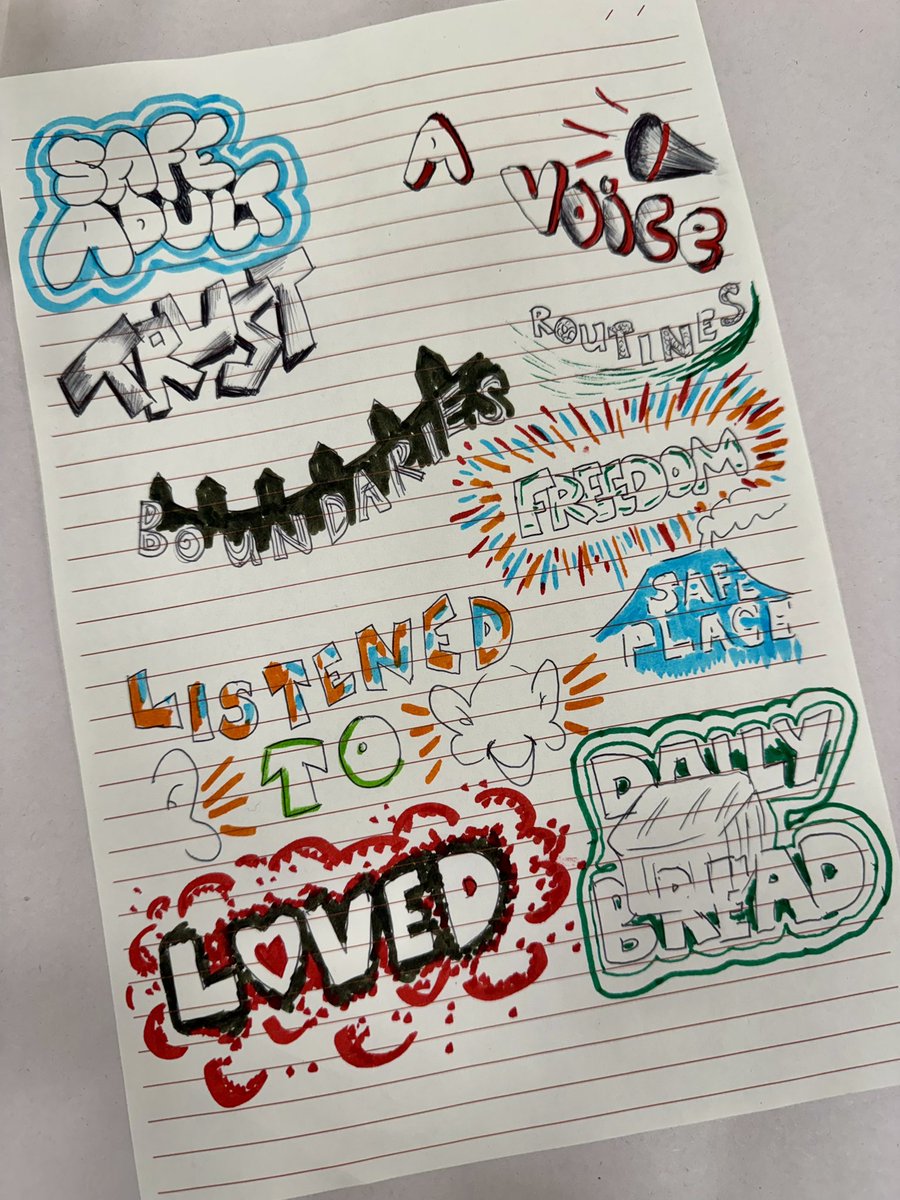 SAFE
ADULT
A
VOiCE
TRUST
ROUTINES
BOUNDARIES
FREEDOM
SAFE
PLACE
LISTENED
TO
DAILY
BREAD
LOVED